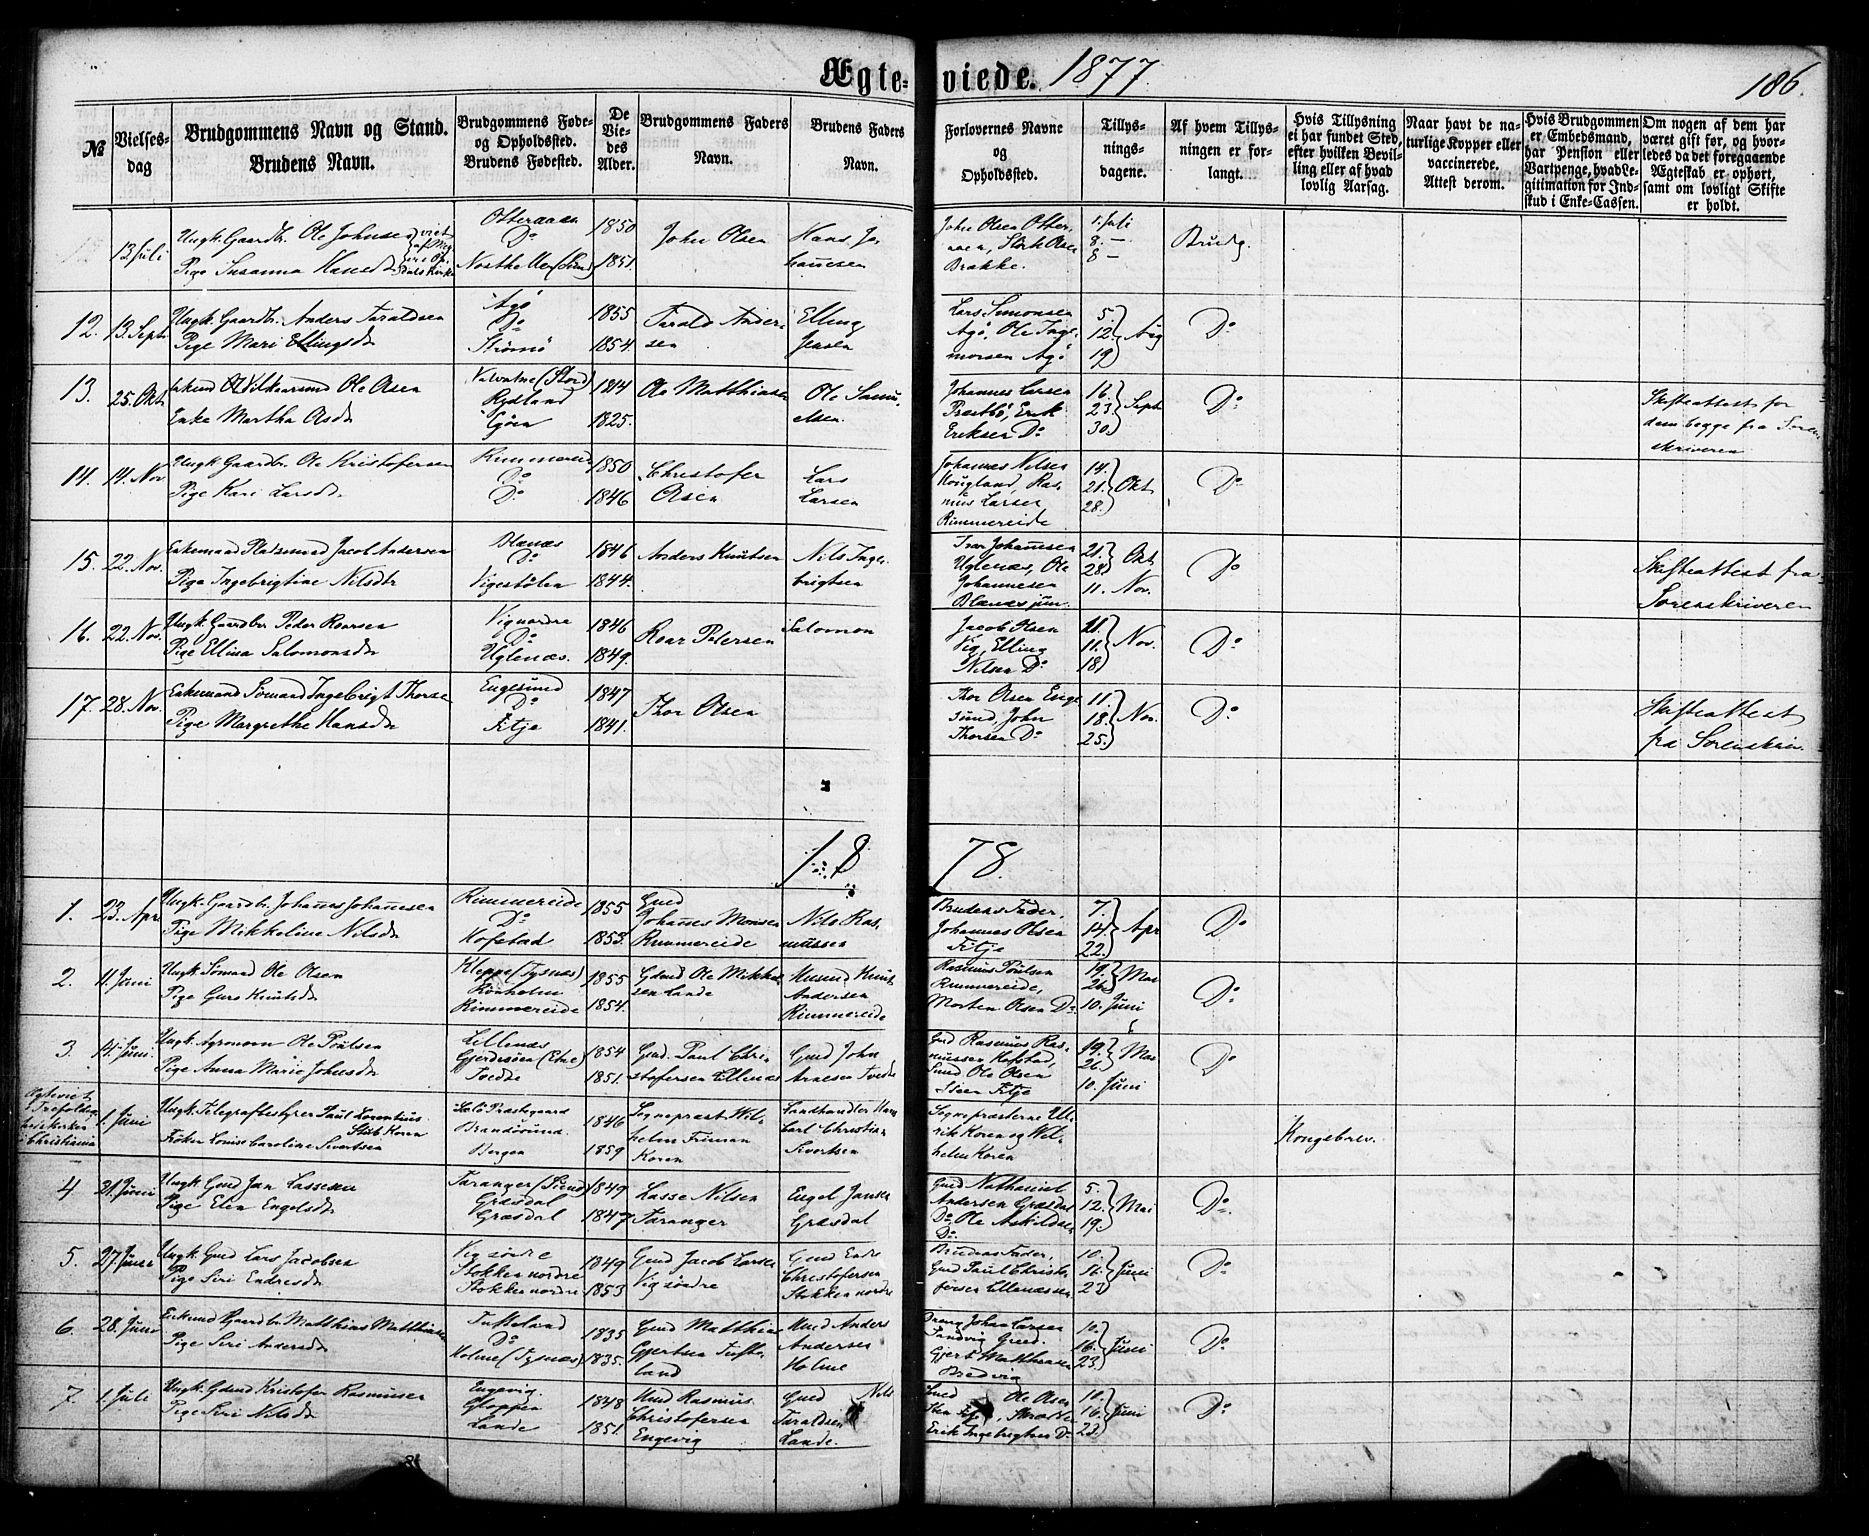 Ægte-viede. 1877.
186.
№
Vielses-dag
Brudgommens Navn og Stand.
Brudens Navn.
Brudgommens Føde- og Opholdssted.
Brudens Fødested.
De Viedes Alder.
Brudgommens Faders Navn.
Brudens Faders Navn.
Forlovernes Navne og Opholdssted.
Tillysningsdagene.
Af hvem Tillysningen er forlangt.
Hvis Tillysning ei har fundet Sted, efter hvilken Bevilling eller af hvad lovlig Aarsag.
Naar havt de naturlige Kopper eller vaccinerede. Attest derom.
Hvis Brudgommen er Embedsmand, har Pension eller Vartpenge, hvad Legitimation for Indskud i Enke-Cassen.
Om nogen af dem har været gift før, og hvorledes da det foregaaende Ægteskab er ophørt, samt om lovligt Skifte er holdt.
13 Juli
Ungk. Gaardbr. Ole Johnsen
Pige Susanna Hansdr
Do
1850
1851.
John Olsen
Hans Johannesen
John Olsen
Brakke.
1. Juli
8. —
8 —
Brudg.
12. 13. Sept
Ungk. Gaardbr. Anders Taraldsen
Pige Mari Ellingsdr
Agø
Do
Strømø
1855
1854.
Tarald Andersen
Elling Jensen
Lars Simonsen
Agø, Ole Ingemorsen Agø
5.
12.
19
Aug
Do
13. 25. Okt
Ole Olsen
Enke Martha Olsdr
Valvatne (Stord)
Rydland
1814
1825.
Ole Matthiasen
Ole Samuelsen.
Johannes Larsen
Præstbø, Erik
Eriksen Do
16.
23.
30.
Sept
Do
Skifteattest for
dem begge fra Sorenskriveren
14. 14. Nov
Ungk. Gaardbr. Ole Kristofersen
Pige Kari Larsdr
Rimmereid
Do
Do
1850
1846
Christofer
Olsen
Lars
Larsen
Johannes Nilsen
Hougland, Rasmus Larsen
Rimmereide
14.
21.
28.
Okt
Do
15. 22. Nov.
Enkemand Pladsmand Jacob Andersen
Pige Ingebrigtine Nilsdtr
Blænæs
Do
Vigestølen
1846
1844.
Anders Knutsen
Nils Ingebrigtsen
Ivar Johannesen
Uglenæs, Ole
Johannesen
Blænæs jun.
21.
28
Okt
11. Nov.
Do
Skifteattest fra
Sorenskriveren
16. 22. Nov.
Ungk. Gaardbr. Peder Roarsen
Pige Ellisa Salomonsdr
Vignordre
Do
Uglenæs.
1846
1849.
Roar Petersen
Salomon
Jacob Olsen
Vig, Elling
Nilsen Do
11.
18
Nov.
Do
17. 28. Nov.
Enkemand Sømand Ingebrigt Thorsen
Pige Margrethe Hansdr
Engesund
Do
Fitje
1847
1841.
Thor Olsen
Thor Olsen Engesund, John
Thorsen Do
11.
18.
25.
Nov.
Do
Skifteattest
fra Sorenskriv.
18 78.
1. 23. Apr
Ungk. Gaardbr. Johannes Johannesen
Pige Mikkeline Nilsdr
Rimmereide
Do
Hofstad
1855
1853.
Gmd
Johannes Monsen
Rimmereide
Nils Rasmussen
Brudens Fader,
Johannes Olsen
Fitje
7.
14.
22.
Apr
Do
2. 11. Juni
Ungk. Sømand Ole Olsen
Pige Guro Knutsdr
Kleppe (Tysnæs)
Rønholm
Rimmereide
1855
1854.
Gdmd Ole Mikkelsen Lande
Husmd Knut
Andersen
Rimmereide
Rasmus Poulsen
Rimmereide,
Morten Olsen Do
19.
26.
Mai
10. Juni
Do
3. 14. Juni
Ungk. Agronom Ole Poulsen
Pige Anna Marie Johnsdr
Lillenæs
Gjerdesøen (Etne)
Tvedte
1854
1851.
Gmd. Paul Christofersen Lillenæs
Gmd John
Arnesen Tvedte
Gmd Rasmus Rasmussen Hofstad,
Smd Ole Olsen
Steen Fitje
19.
26.
Mai
10. Juni
Do
Ægteviet
i Trefoldighedskirken
i Christiania
1. Juni
Ungk. Telegrafbestyrer Paul Laurentius
Stub Koren
Frøken Louise Caroline Sivertsen
Selø Præstegaard
Brandøsund.
Bergen
1846
1859
Sognepræst Wilhelm Friman
Koren
Landhandler Hans
Carl Christian
Sivertsen
Sognepræsterne Ulrik Koren og Wilhelm Koren
Kongebrev.
4 21. Juni
Ungk Gmd Jan Lassesen
Pige Elen Engelsdr
Taranger (Sund)
Græsdal
Græsdal
1849
1847
Lasse Nilsen
Taranger
Engel Jansen
Græsdal
Gmd Nathaniel
Andersen Græsdal
Do Ole Askildsen
Do
5.
12.
19.
Mai
Do.
5. 27. Juni
Ungk. Gmd Lars Jacobsen
Pige Siri Endresdr
Vig søndre
Stokken nordre
Stokken nordre
1849
1853
Gmd Jacob Larsen
Vig søndre
Gmd Endre
Christofersen
Stokken nordre
Brudens Fader,
Gmd Paul Christofersen Lillenæs
10.
16.
23
Juni
Do
6. 28. Juni
Enkmd Gaardbr. Matthias Matthiasen
Pige Siri Andersdr
Tufteland
Do
Holme (Tysnæs)
1835
1835.
Gmd Matthias
Gjertsen Tufteland
Gmd Anders
Andersen
Holme
Johan Larsen
Sandvig Gmd.
Gjert Matthiasen
Bredvig
10.
16.
23.
Juni
Do
7. 1. Juli
Ungk. Gdmd Kristofer Rasmusen
Pige Siri Nilsdr
Engevig.
Gloppen
Lande
1848
1851.
Gmd Rasmus
Christofersen
Engevig
Gmd Nils
Taraldsen
Lande.
Gmd Ole Olsen
Sten Fitje,
Erik Ingebrigtsen Do
10.
16.
23.
Juni
Do